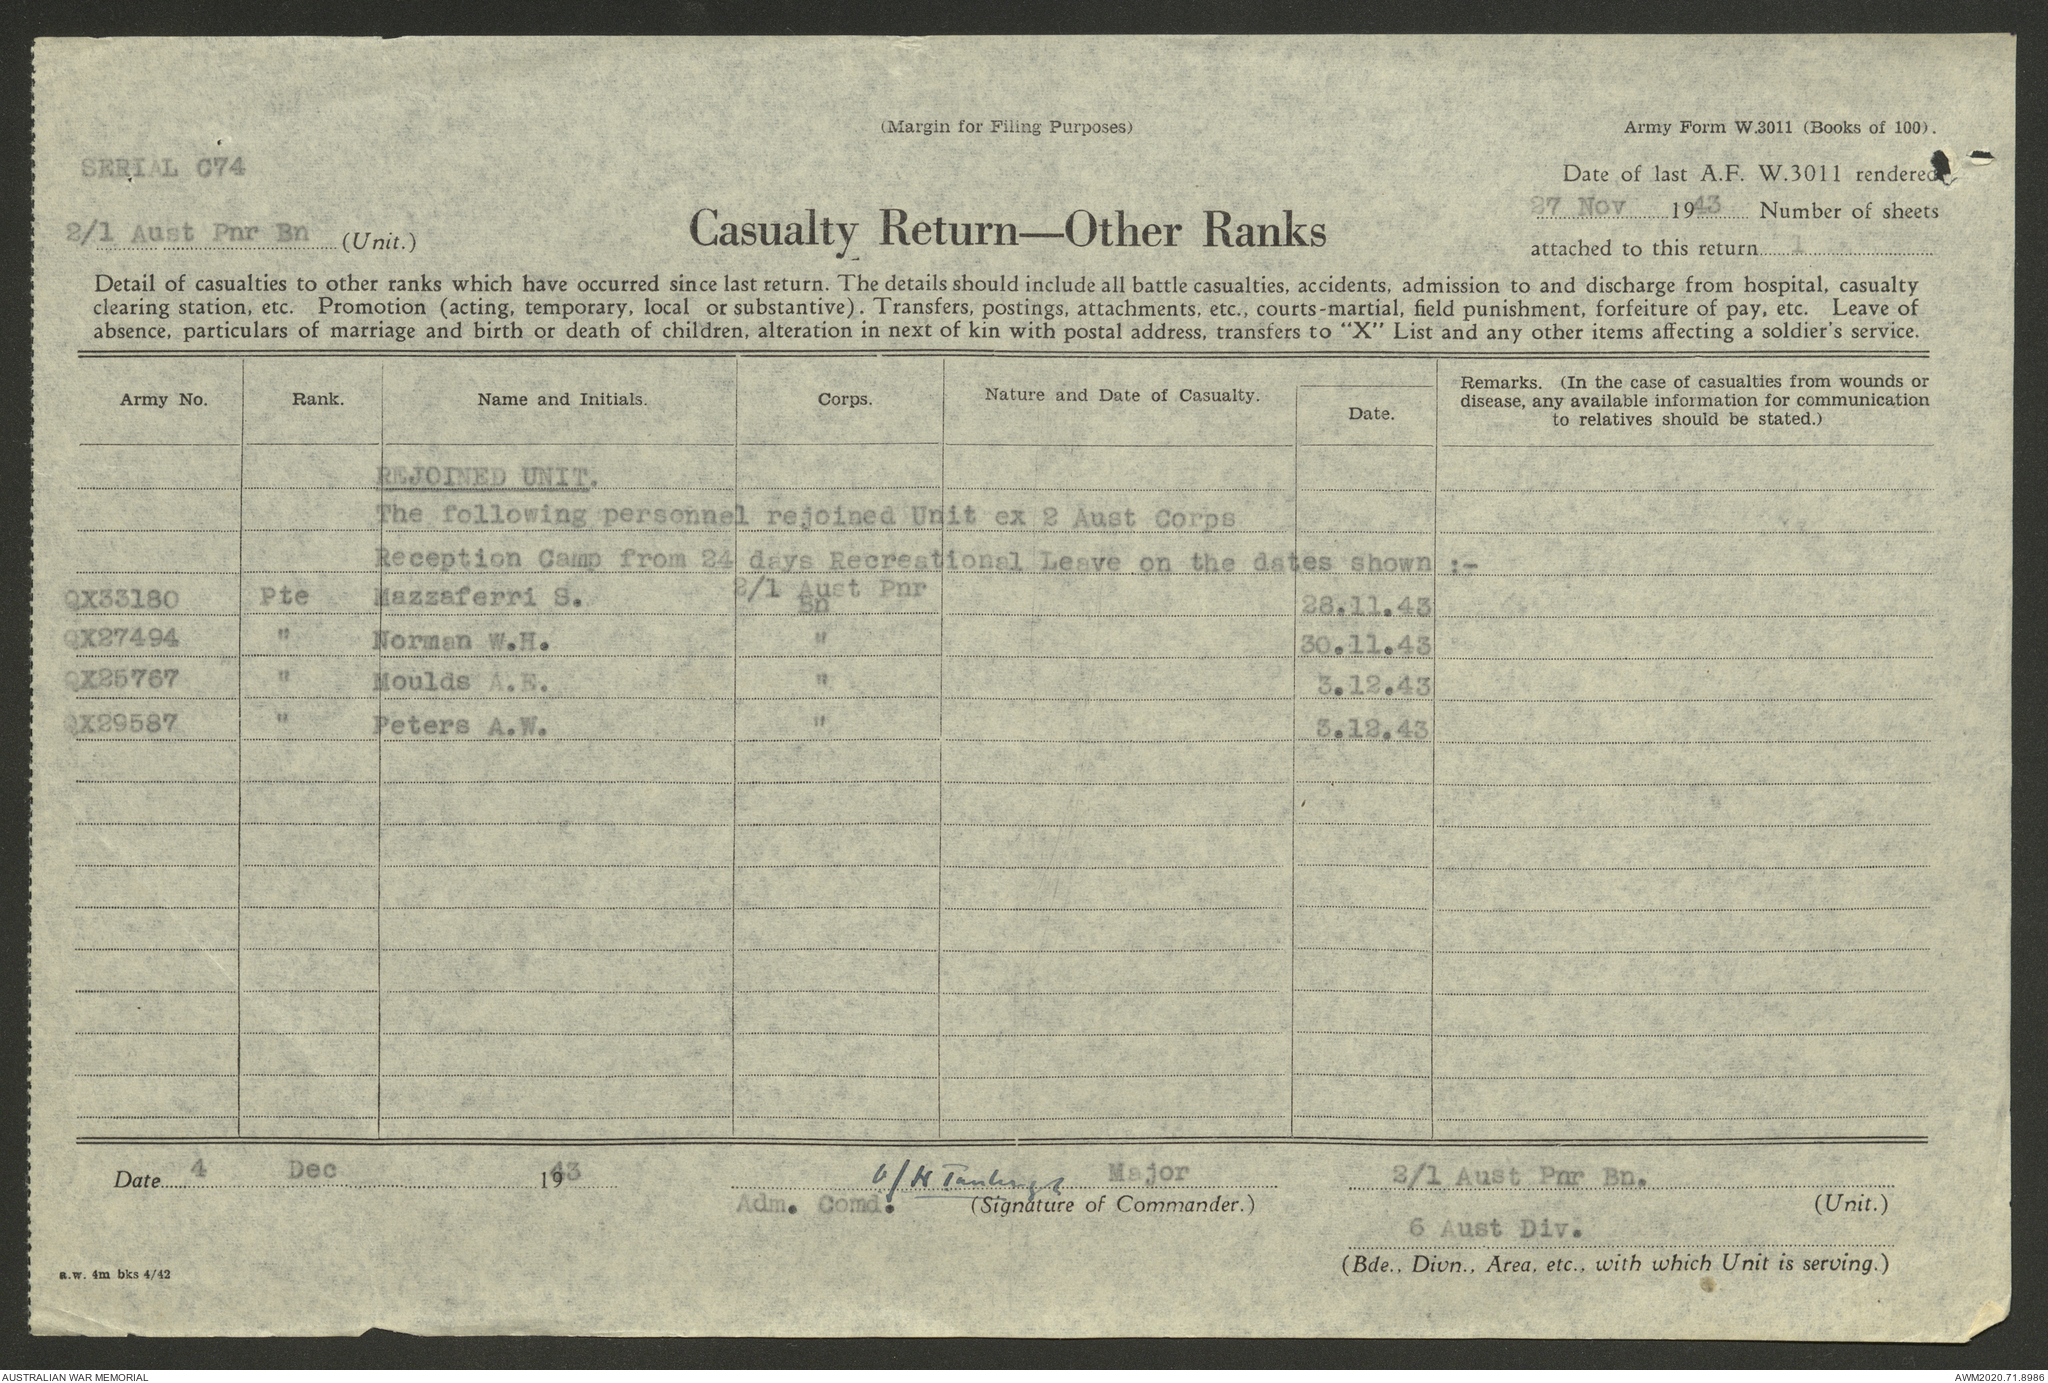 (Margin for Filing Purposes)
Army Form W.3011 (Books of 100).
SERIAL C74
Date of last A.F. W.3011 rendered
27 Nov 1943 Number of sheets
2/1 Aust Pnr Bn (Unit.)
Casualty Return—Other Ranks
attached to this return 1
Detail of casualties to other ranks which have occurred since last return. The details should include all battle casualties, accidents, admission to and discharge from hospital, casualty
clearing station, etc. Promotion (acting, temporary, local or substantive). Transfers, postings, attachments, etc., courts-martial, field punishment, forfeiture of pay, etc. Leave of
absence, particulars of marriage and birth or death of children, alteration in next of kin with postal address, transfers to "X" List and any other items affecting a soldier's service.
Army No. Rank. Name and Initials. Corps. Nature and Date of Casualty. Date. Remarks. (In the case of casualties from wounds or
disease, any available information for communication
to relatives should be stated.)
REJOINED UNIT.
The following personnel rejoined Unit ex 2 Aust Corps
Reception Camp from 24 days Recreational Leave on the dates shown :-
QX33180 Pte Mazzaferri S. 2/1 Aust Pnr Bn 28.11.43
QX27494 " Norman W.H. " 30.11.43
QX25767 " Moulds A.E. " 3.12.43
QX29587 " Peters A.W. " 3.12.43
Date 4 Dec 1943
Major
Adm. Comd. (Signature of Commander.)
2/1 Aust Pnr Bn.
(Unit.)
6 Aust Div.
(Bde., Divn., Area, etc., with which Unit is serving.)
a.w. 4m bks 4/42
AUSTRALIAN WAR MEMORIAL
AWM2020.71.8986